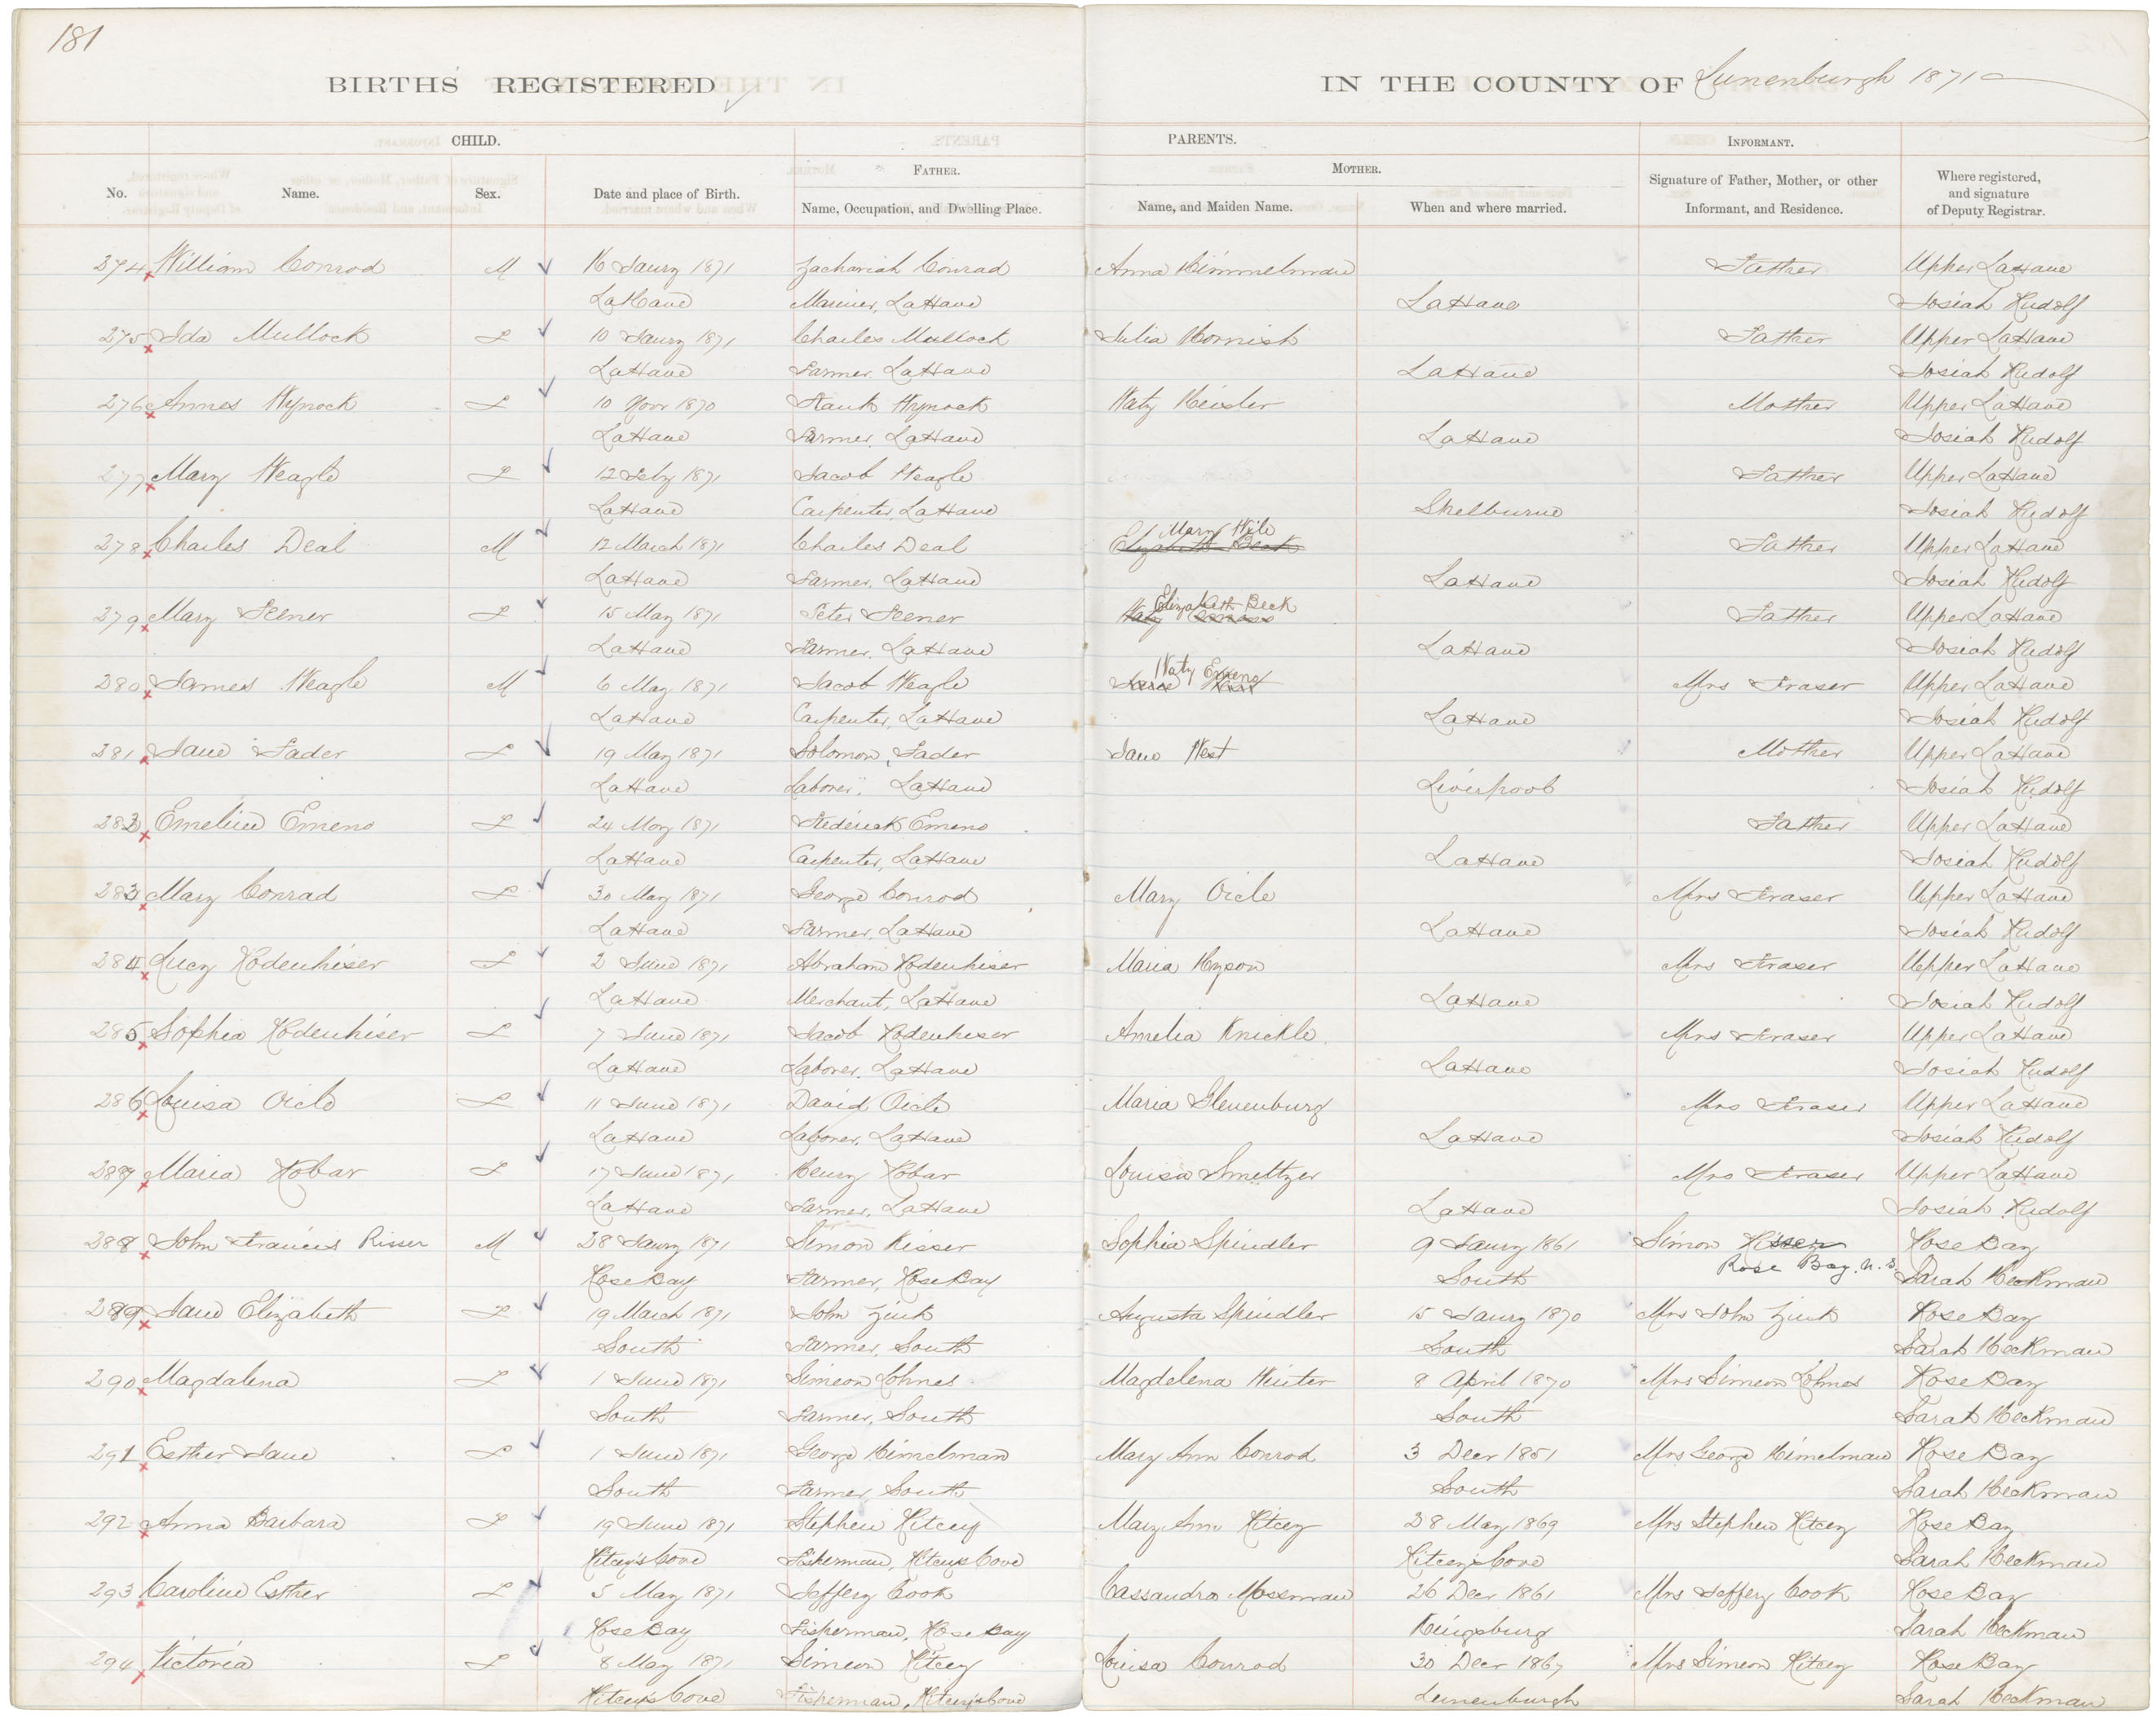 181
BIRTHS REGISTERED IN THE COUNTY OF Lunenburgh 1871
CHILD. PARENTS. INFORMANT.
FATHER. MOTHER.
No. Name. Sex. Date and place of Birth. Name, Occupation, and Dwelling Place. Name, and Maiden Name. When and where married. Signature of Father, Mother, or other Informant, and Residence. Where registered, and signature of Deputy Registrar.
274 William Conrod M 16 Jaury 1871 Zachariah Conrad Anna Himmelman Father Upper LaHave
LaHave Mariner, LaHave LaHave Josiah Rudolf
275 Ida Mullock F 10 Jaury 1871 Charles Mullock Julia Hornish Father Upper LaHave
LaHave Farmer, LaHave LaHave Josiah Rudolf
276 Annes Wynock F 10 Novr 1870 Frank Wynock Katy Keizler Mother Upper LaHave
LaHave Farmer, LaHave LaHave Josiah Rudolf
277 Mary Weagle F 12 Feby 1871 Jacob Weagle Father Upper LaHave
LaHave Carpenter, LaHave Shelburne Josiah Rudolf
Mary Wile
278 Charles Deal M 12 March 1871 Charles Deal Elizabeth Beck Father Upper LaHave
LaHave Farmer, LaHave LaHave Josiah Rudolf
Elizabeth Beck
279 Mary Feener F 15 May 1871 Peter Feener Katy Emeno Father Upper LaHave
LaHave Farmer, LaHave LaHave Josiah Rudolf
Katy Emeno
280 James Weagle M 6 May 1871 Jacob Weagle Jane West Mrs Fraser Upper LaHave
LaHave Carpenter, LaHave LaHave Josiah Rudolf
281 Jane Fader F 19 May 1871 Solomon Fader Jane West Mother Upper LaHave
LaHave Laborer, LaHave Liverpool Josiah Rudolf
282 Emeline Emeno F 24 May 1871 Frederick Emeno Father Upper LaHave
LaHave Carpenter, LaHave LaHave Josiah Rudolf
283 Mary Conrad F 30 May 1871 George Conrod Mary Oicle Mrs Fraser Upper LaHave
LaHave Farmer, LaHave LaHave Josiah Rudolf
284 Lucy Rodenhiser F 2 June 1871 Abraham Rodenhiser Maria Hyson Mrs Fraser Upper LaHave
LaHave Merchant, LaHave LaHave Josiah Rudolf
285 Sophia Rodenhiser F 7 June 1871 Jacob Rodenhiser Amelia Knickle Mrs Fraser Upper LaHave
LaHave Laborer, LaHave LaHave Josiah Rudolf
286 Louisa Oicle F 11 June 1871 David Oicle Maria Glenenburg Mrs Fraser Upper LaHave
LaHave Laborer, LaHave LaHave Josiah Rudolf
287 Maria Robar F 17 June 1871 Henry Robar Louisa Smeltzer Mrs Fraser Upper LaHave
LaHave Farmer, LaHave LaHave Josiah Rudolf
288 John Francis Risser M 28 Jaury 1871 Simon Risser Sophia Spindler 9 Jaury 1861 Simon Risser Rose Bay
Rose Bay Farmer, Rose Bay South Rose Bay. N. S. Sarah Heckman
289 Jane Elizabeth F 19 March 1871 John Zink Augusta Spindler 15 Jaury 1870 Mrs John Zink Rose Bay
South Farmer, South South Sarah Heckman
290 Magdalena F 1 June 1871 Simeon Lohnes Magdelena Winter 8 April 1870 Mrs Simeon Lohnes Rose Bay
South Farmer, South South Sarah Heckman
291 Esther Jane F 1 June 1871 George Himelman Mary Ann Conrod 3 Decr 1851 Mrs George Himelman Rose Bay
South Farmer, South South Sarah Heckman
292 Anna Barbara F 19 June 1871 Stephen Ritcey Mary Ann Ritcey 28 May 1869 Mrs Stephen Ritcey Rose Bay
Ritcey's Cove Fisherman, Ritcey's Cove Ritcey's Cove Sarah Heckman
293 Caroline Esther F 5 May 1871 Jeffery Cook Cassandra Moseman 26 Decr 1861 Mrs Jeffery Cook Rose Bay
Rose Bay Fisherman, Rose Bay Kingsburg Sarah Heckman
294 Victoria F 8 May 1871 Simeon Ritcey Louisa Conrod 30 Decr 1867 Mrs Simeon Ritcey Rose Bay
Ritcey's Cove Fisherman, Ritcey's Cove Lunenburgh Sarah Heckman